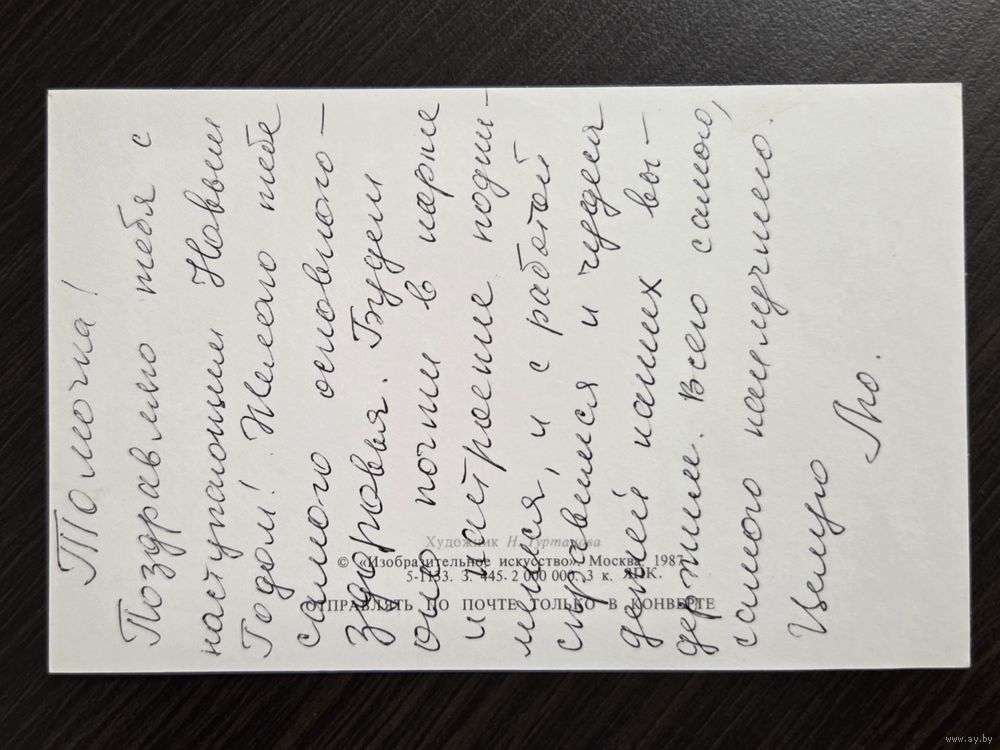 Томочка!
Поздравляю тебя с
наступающим Новым
Годом! Желаю тебе
самого основного —
здоровья. Будем
оно почти в норме
и настроение подни-
мется, и с работой
справимся и чудеса
детей наших вы-
держим. Всего самого,
самого наилучшего.
Целую
Лю.
Художник Н. Туртанова
© «Изобразительное искусство». Москва. 1987
5-1133. З. 445. 2 000 000. 3 к. ЯПК.
ОТПРАВЛЯТЬ ПО ПОЧТЕ ТОЛЬКО В КОНВЕРТЕ
www.ay.by